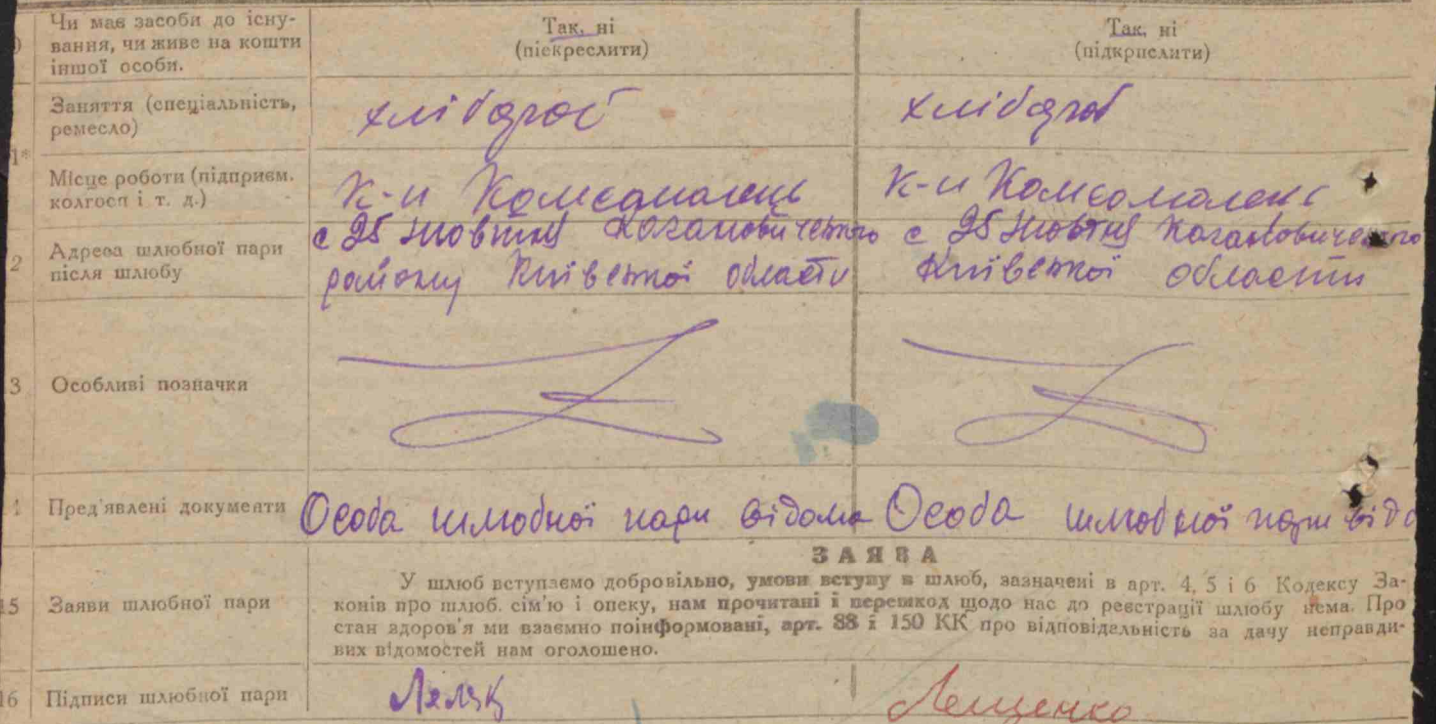 Чи має засоби до існу-
вання, чи живе на кошти
іншої особи.
Так, ні
(піекреслити)
Так, ні
(підкрислити)
Заняття (спеціальність,
ремесло)
хлібороб
хлібороб
1*
Місце роботи (підприєм.
колгосп і т. д.)
к-п Комсомолець
к-п Комсомолець
2
Адреса шлюбної пари
після шлюбу
с 25 Жовтня Кагановичського
району Київської області
с 25 Жовтня Кагановичського
Київської області
3
Особливі позначки
Пред'явлені документи
Особа шлюбної пари відома
Особа шлюбної пари відо
15
Заяви шлюбної пари
ЗАЯВА
У шлюб вступаємо добровільно, умови вступу в шлюб, зазначені в арт. 4, 5 і 6 Кодексу За-
конів про шлюб. сім'ю і опеку, нам прочитані і перешкод щодо нас до реєстрації шлюбу нема. Про
стан здоров'я ми взаємно поінформовані, арт. 88 і 150 КК про відповідельність за дачу неправди-
вих відомостей нам оголошено.
16
Підписи шлюбної пари
Лещенко